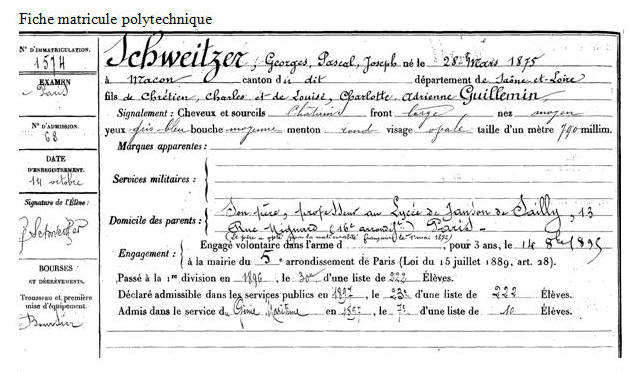 Fiche matricule polytechnique
N° D'IMMATRICULATION.
1574
EXAMEN
Paris
N° D'ADMISSION.
68
DATE
D'ENREGISTREMENT.
14 octobre
Signature de l'Élève :
Schweitzer
BOURSES
ET DÉGRÈVEMENTS.
Trousseau et première
mise d'équipement.
Boursier
Schweitzer, Georges, Pascal, Joseph né le 28 Mars 1875
à Macon canton du dit département de Saône-et-Loire
fils de Chrétien, Charles et de Louise, Charlotte Adrienne Guillemin
Signalement : Cheveux et sourcils Châtains front large nez moyen
yeux gris bleu bouche moyenne menton rond visage ovale taille d'un mètre 790 millim.
Marques apparentes :
Services militaires :
Domicile des parents : Son père, professeur au Lycée de Janson de Sailly, 13
Rue Mignard (16e arrondt) Paris
Engagement : Engagé volontaire dans l'arme d , pour 3 ans, le 14 8bre 1895
à la mairie du 5e arrondissement de Paris (Loi du 15 juillet 1889, art. 28).
Passé à la 1re division en 1896, le 30e d'une liste de 222 Élèves.
Déclaré admissible dans les services publics en 1897, le 23e d'une liste de 222 Élèves.
Admis dans le service du Génie Maritime en 1897, le 7e d'une liste de 10 Élèves.